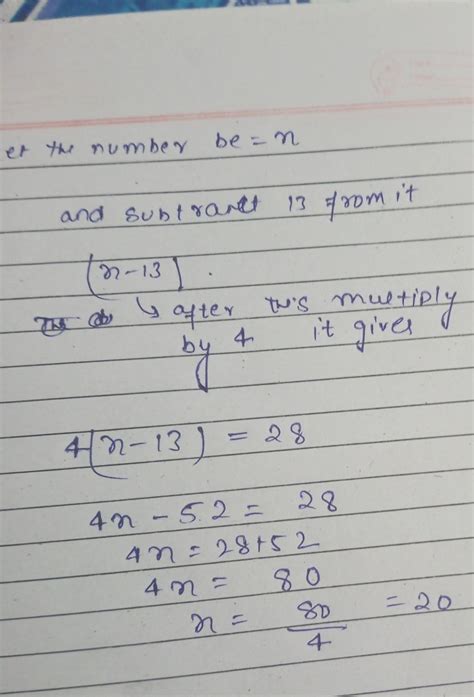 et the number be = n
and subtract 13 from it
(n-13).
↳ after this multiply
by 4 it gives
4(n-13) = 28
4n - 52 = 28
4n = 28+52
4n = 80
n = 80/4 = 20